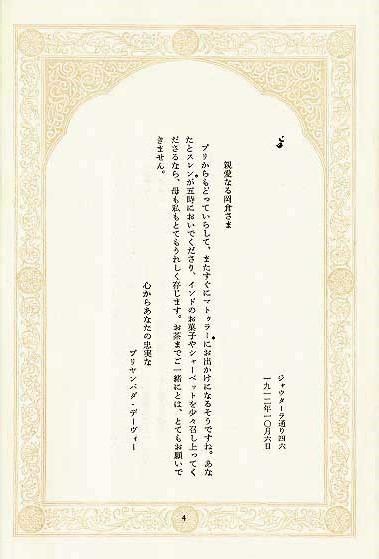 ジャウターラ通り四六
一九一二年一〇月六日
親愛なる岡倉さま
プリからもどっていらして、またすぐにマトゥラーにお出かけになるそうですね。あな
たとスレンが五時においでくださり、インドのお菓子やシャーベットを少々召し上ってく
ださるなら、母も私もとてもうれしく存じます。お茶までご一緒にとは、とてもお願いで
きません。
心からあなたの忠実な
プリヤンバダ・デーヴィー
4